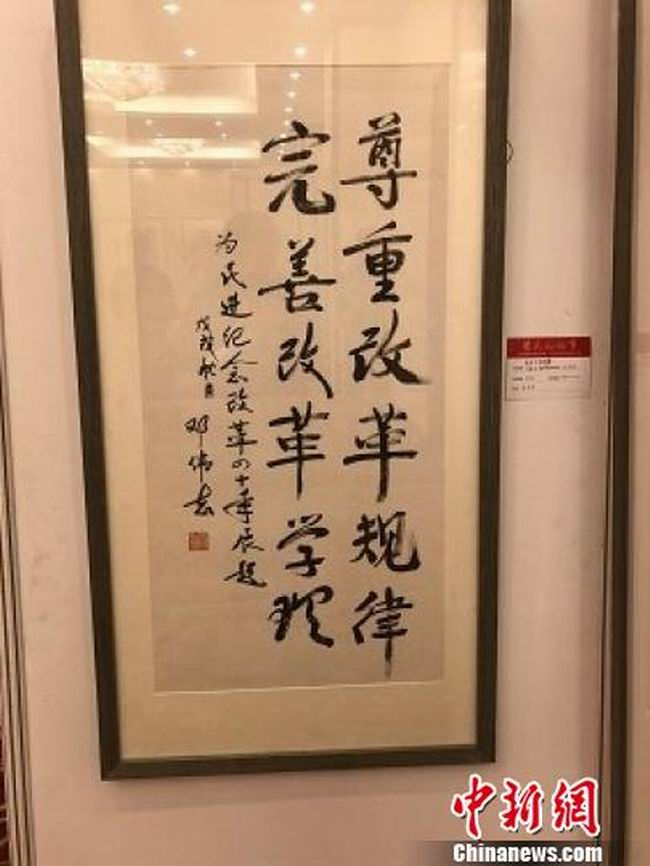 尊重改革规律
完善改革学理
为民进纪念改革四十年展题
戊戌秋月
邓伟志
中新網
Chinanews.com